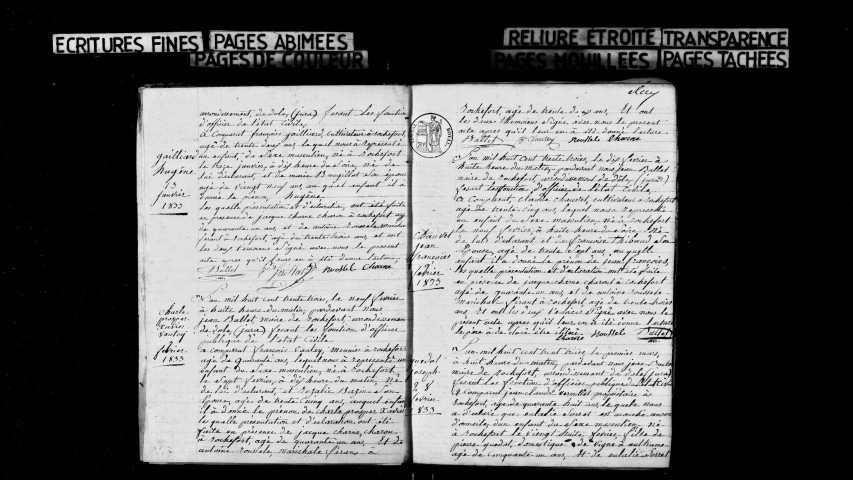 ECRITURES FINES
PAGES ABIMEES
PAGES DE COULEUR
RELIURE ETROITE
TRANSPARENCE
PAGES MOUILLEES
PAGES TACHEES
arrondissement de dole (jura) fesant les fonction
d'officier de l'état civile
a Comparut françois gailliard, cultivateur à rochefort,
agé de trente deux ans, le quel nous a représenté
un enfant, du sexe masculin, né à rochefort
le treize janvier, à dix heure du soire, né de
lui déclarant, et de marie son épouse
agé de vingt neuf ans, au quel enfant il a
donné le prénom, hugène
les quelle présentation et déclaration, ont été faite
en presence de jacque charne charon à rochefort agé
de quarante un ans, et de antoine roussele marechal
ferant à rochefort, agé de trente trois ans et ont
les deux témoins signé avec nous le present
acte apres qu'il leur en a été donné lecture
Ballet Roussel Charne
gailliard
hugène
13
janvier
1833
L'an mil huit cent trente trois, le neuf fevrier
à huite heure du matin, pardevant nous
jean Ballot maire de rochefort arrondissement
de dole (jura) fesant les fonction d'officier
publique de l'état civile
a comparut francois vautey, meunier à rochefort
agé de quarante ans, lequel nous a représenté un
enfant du sexe masculin, né à rochefort,
le sept fevrier, à dix heure du matin, né
de lui déclarant, et rosalie son
épouse, agé de trente cinq ans, auquel enfant
il à donné le prénom de charle prosper xavier
les quelle présentation et déclaration, ont été
faite en presence de jacque charne, charon
à rochefort, agé de quarante un ans, et de
antoine roussele, marechale ferant à
charle
prosper
xavier
vautey
fevrier
1833
rochefort, agé de trente trois ans, Et ont
les deux témoins signé avec nous le present
acte apres qu'il leur en a été donné lecture
Ballet Roussel Charne
L'an mil huit cent trente trois, le dix fevrier à
huite heure du matin, pardevant nous jean Ballot
maire de rochefort, arrondissement de dole (jura)
fesant les fonction d'officier de l'état civile
a Comparut, claude chauvet, cultivateur à rochefort
agé de trente cinq ans, lequel nous a représenté
un enfant du sexe masculin, né à rochefort
le neuf fevrier, à huite heure du soire, né
de lui déclarant, et de françoise son
épouse, agé de trente sept ans, au quelle
enfant il a donné le prénom de jean françois,
les quelle présentation et déclaration ont été faite
en presence de jacque charne charont à rochefort
agé de quarante un ans, et de antoine roussele
marechale ferant à rochefort, agé de trente trois
ans, Et ont les deux témoins signé avec nous le
present acte apres qu'il leur en a été donné lecture
Charne Roussel Ballet
Chauvet
jean
françois
9
fevrier
1833
L'an mil huit cent trente trois, le premier mars,
à huit heure du matin, pardevant nous jean Ballot
maire de rochefort, arrondissement de dole (jura)
fesant les fonction d'officier publique de l'état civile
a Comparut jean claude propriétaire à
rochefort, agé de quarante huit ans le quelle nous
a déclaré que eulalie
domicile d'un enfant du sexe masculin, né
à rochefort le vingt huite fevrier, fils de
pierre quedot, domestique
agé de cinquante un ans, et de eulalie
quedot
joseph
28
fevrier
1833